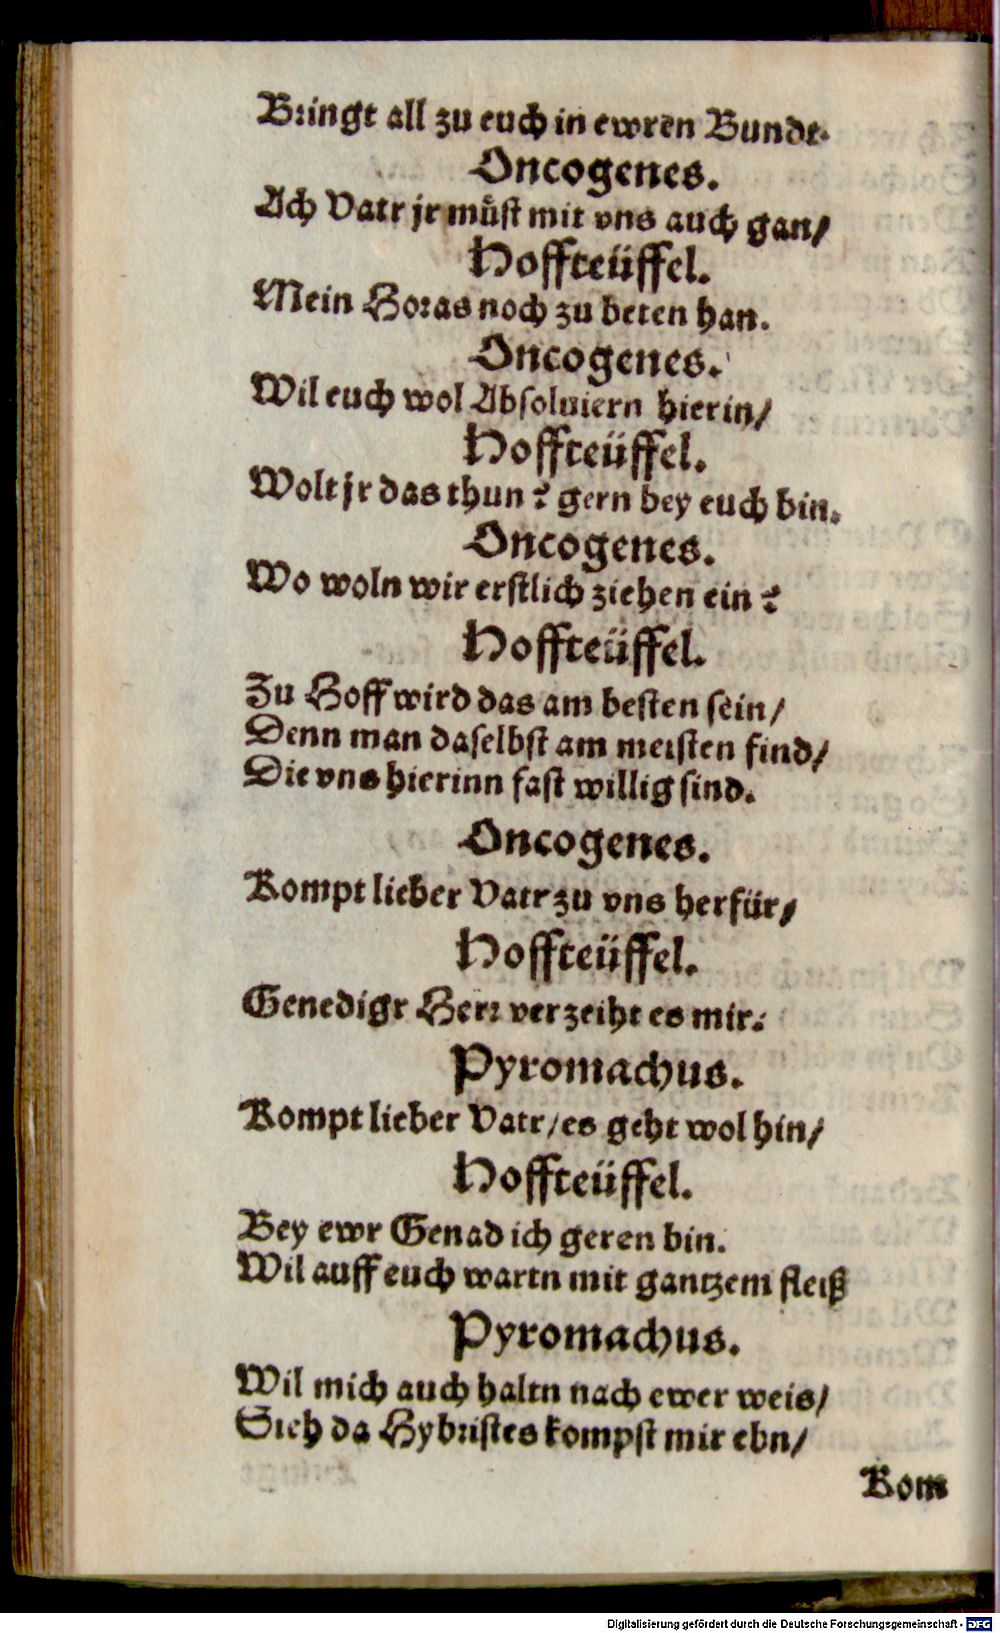 Bringt all zu euch in ewren Bundt.
Oncogenes.
Ach Vatr jr můst mit vns auch gan/
Hoffteüffel.
Mein Horas noch zu beten han.
Oncogenes.
Wil euch wol Absoluiern hierin/
Hoffteüffel.
Wolt jr das thun? gern bey euch bin.
Oncogenes.
Wo woln wir erstlich ziehen ein?
Hoffteüffel.
Zu Hoff wird das am besten sein/
Denn man daselbst am meisten find/
Die vns hierinn fast willig sind.
Oncogenes.
Kompt lieber Vatr zu vns herfür/
Hoffteüffel.
Genedigr Herr verzeiht es mir.
Pyromachus.
Kompt lieber Vatr/es geht wol hin/
Hoffteüffel.
Bey ewr Genad ich geren bin.
Wil auff euch wartn mit gantzem fleiß
Pyromachus.
Wil mich auch haltn nach ewer weis/
Sieh da Hybristes kompst mir ebn/
Kom
Digitalisierung gefördert durch die Deutsche Forschungsgemeinschaft - DFG